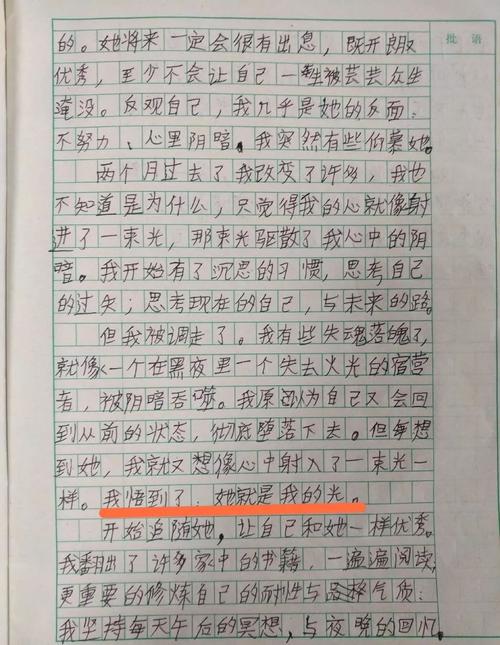 批语
的。她将来一定会很有出息，既开朗又
优秀，至少不会让自己一生被芸芸众生
淹没。反观自己，我几乎是她的反面：
不努力、心里阴暗。我突然有些怕慕她。
两个月过去了我改变了许多，我也
不知道是为什么，只觉得我的心就像射
进了一束光，那束光驱散了我心中的阴
暗。我开始有了沉思的习惯，思考自己
的过失；思考现在的自己，与未来的路。
但我被调走了。我有些失魂落魄了，
就像一个在黑夜里一个失去火光的宿营
者，被阴暗吞噬。我原以为自己又会回
到从前的状态，彻底堕落下去。但每想
到她，我就又想像心中射入了一束光一
样。我悟到了：她就是我的光。
开始追随她，让自己和她一样优秀。
我翻出了许多家中的书籍，一遍遍阅读，
更重要的修炼自己的耐性与气质：
我坚持每天午后的冥想，与夜晚的回忆。